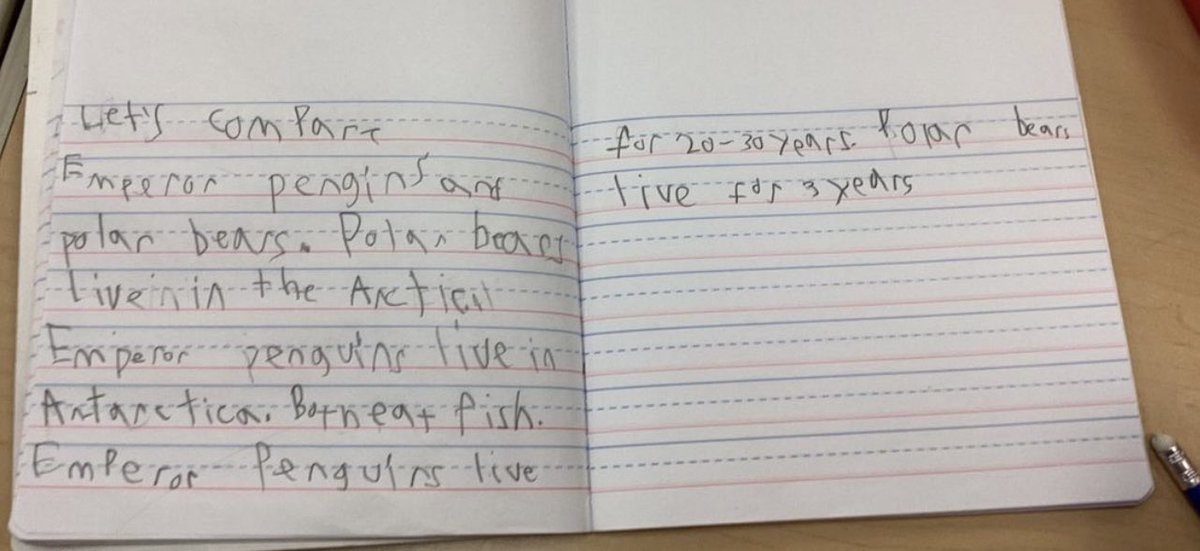 Let's compare
Emperor pengins and
polar bears. Polar bears
live in in the Arctical
Emperor penguins live in
Antarctica. Both eat fish.
Emperor Penguins live
for 20-30 years. Polar bears
live for 3 years